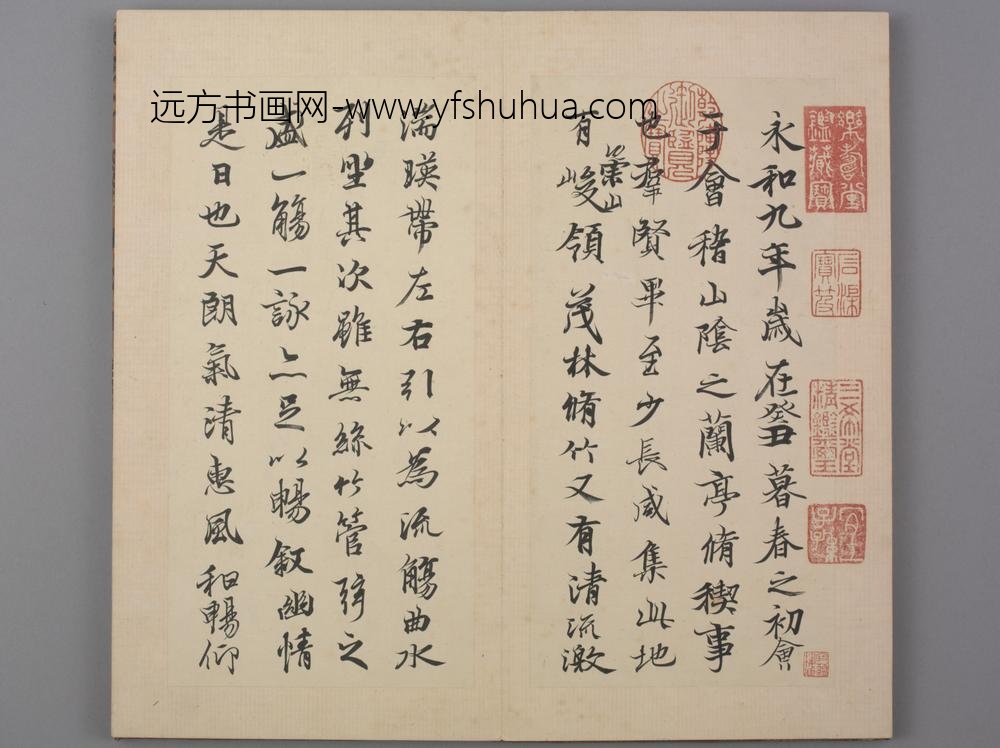 远方书画网-www.yfshuhua.com
永和九年歲在癸丑暮春之初會
于會稽山陰之蘭亭脩稧事
也羣賢畢至少長咸集此地
有崇山峻領茂林脩竹又有清流激
湍暎帶左右引以為流觴曲水
列坐其次雖無絲竹管弦之
盛一觴一詠亦足以暢叙幽情
是日也天朗氣清惠風和暢仰
樂壽堂鑑藏寶
石渠寶笈
三希堂精鑑璽
宜子孫
乾隆御覽之寶